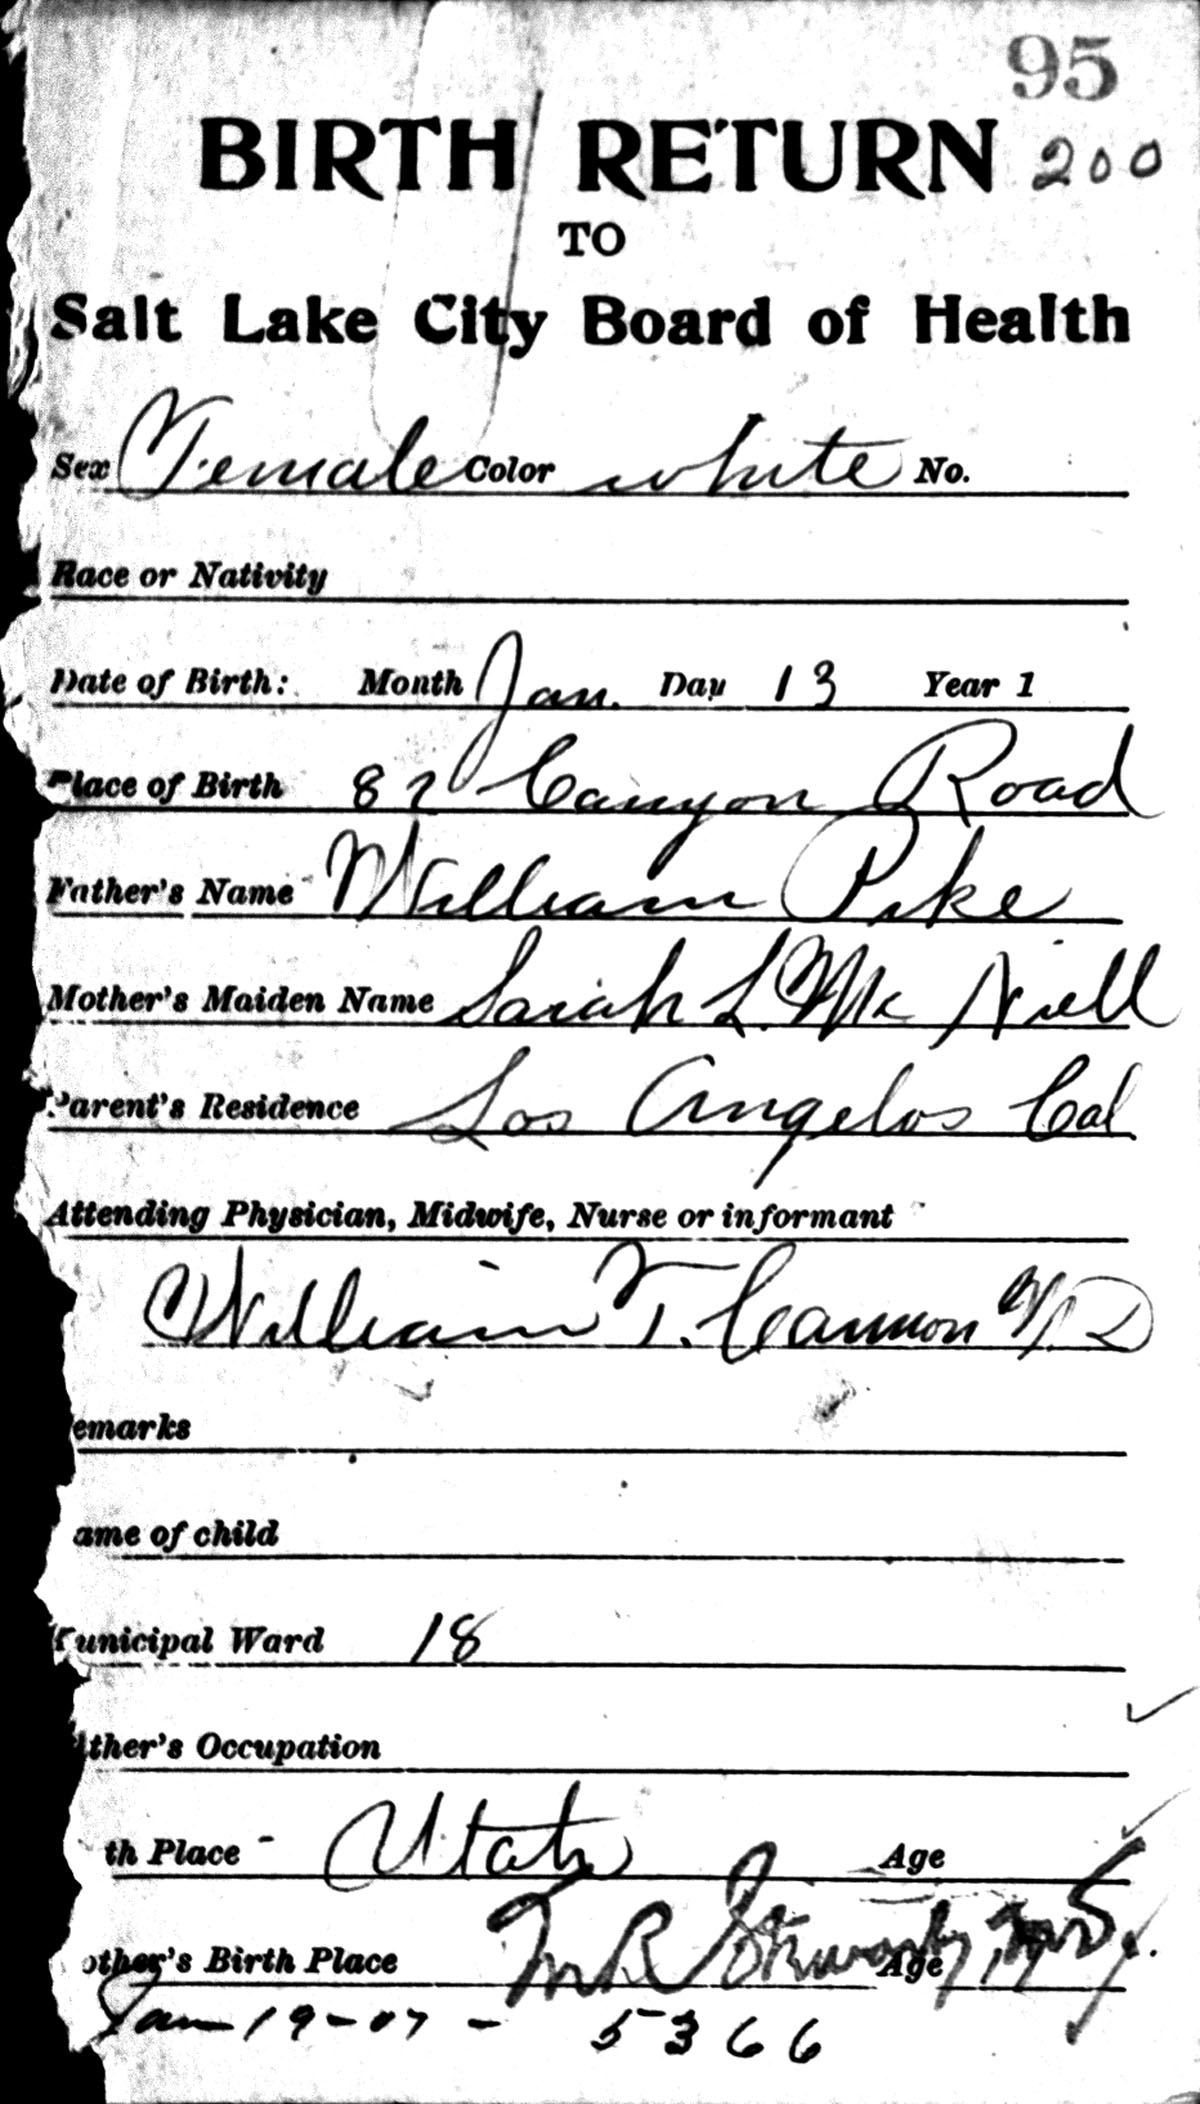 95
BIRTH RETURN 200
TO
Salt Lake City Board of Health
Sex Female Color white No.
Race or Nativity
Date of Birth: Month Jan. Day 13 Year 1
Place of Birth 82 Canyon Road
Father's Name William Pike
Mother's Maiden Name Sarah L. Mc Niell
Parent's Residence Los Angelos Cal
Attending Physician, Midwife, Nurse or informant
William T. Cannon M.D
emarks
ame of child
unicipal Ward 18
ther's Occupation
th Place - Utah Age
other's Birth Place Age
Jan 19-07 - 5366